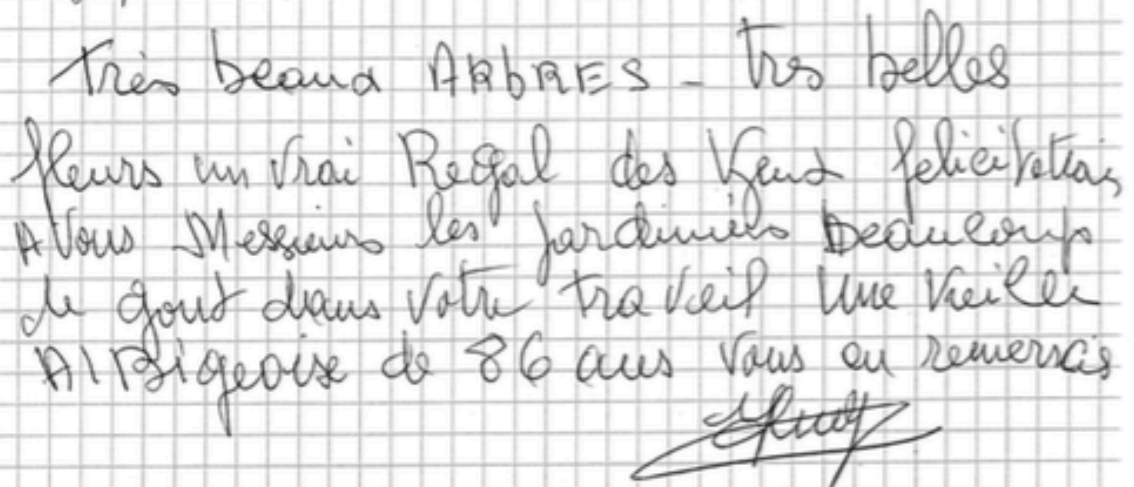 Très beaux ARbRES - Tres belles
fleurs un vrai Regal des Yeux felicitations
A Vous Messieurs les jardiniers Beaucoup
de gout dans votre travail Une Vieille
AlBigeoise de 86 ans vous en remerscis